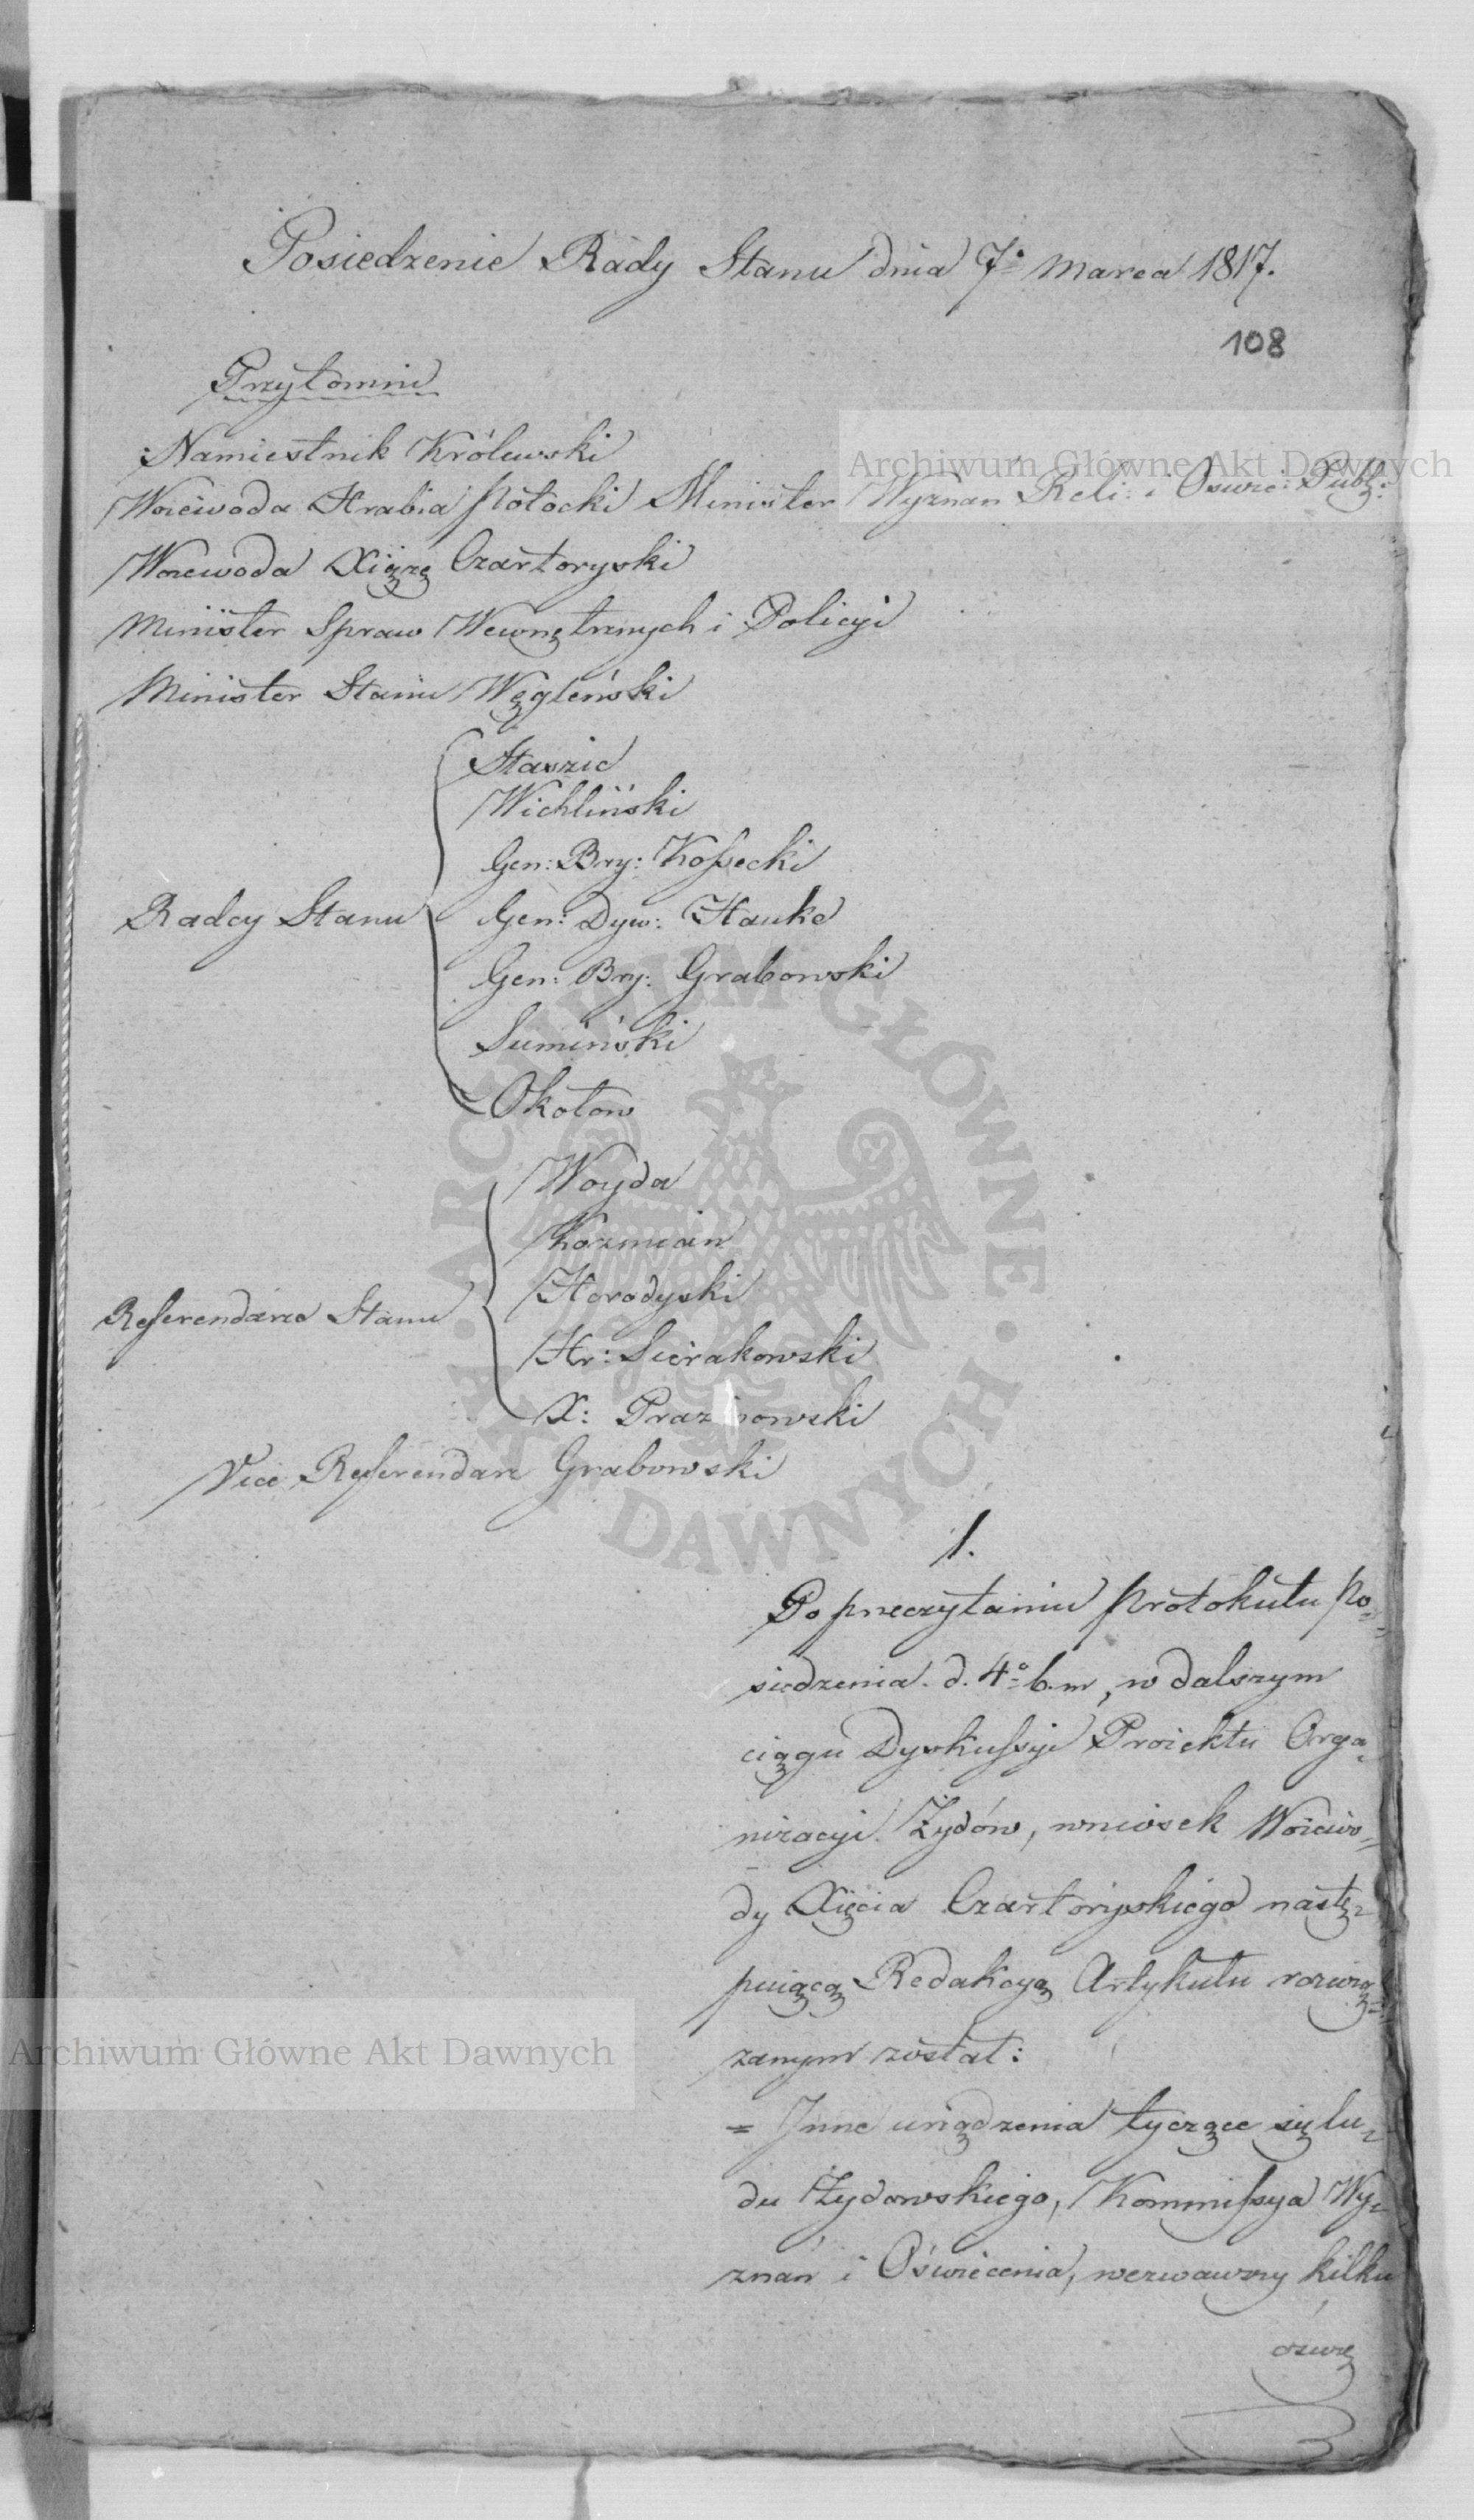 Posiedzenie Rady Stanu dnia 7º Marca 1817.
108
Przytomni
Namiestnik Królewski
Woiewoda Hrabia Potocki Minister Wyznań Reli: i Oświe: Publ:
Woiewoda Xiążę Czartoryski
Minister Spraw Wewnętrznych i Policyi
Minister Stanu Węgleński
Radcy Stanu
Staszic
Wichliński
Gen: Bry: Kossecki
Gen: Dyw: Hauke
Gen: Bry: Grabowski
Sumiński
Okołow
Referendarze Stanu
Woyda
Kozmian
Horodyski
Hr: Sierakowski
X: Prazmowski
Vice Referendarz Grabowski
1.
Po przeczytaniu Protokułu po=
siedzenia d. 4º b. m, w dalszym
ciągu Dyskussyi Proiektu Orga=
nizacyi Żydów, wniosek Woiewo=
dy Xięcia Czartoryskiego nastę=
puiącą Redakcyą Artykułu rozwią=
zanym został:
= Inne urządzenia tyczące się lu=
du Żydowskiego, Kommissya Wy=
znań i Oświecenia, wezwawszy kilku
oświe
Archiwum Główne Akt Dawnych
Archiwum Główne Akt Dawnych
ARCHIWUM GŁÓWNE AKT DAWNYCH